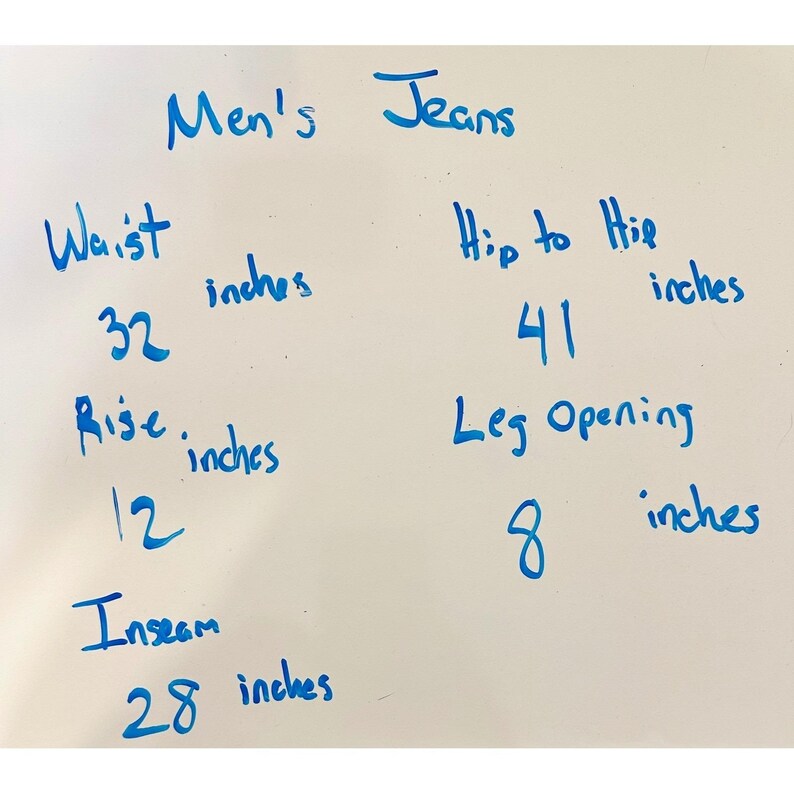 Men's Jeans
Waist
32 inches
Rise
12 inches
Inseam
28 inches
Hip to Hip
41 inches
Leg Opening
8 inches